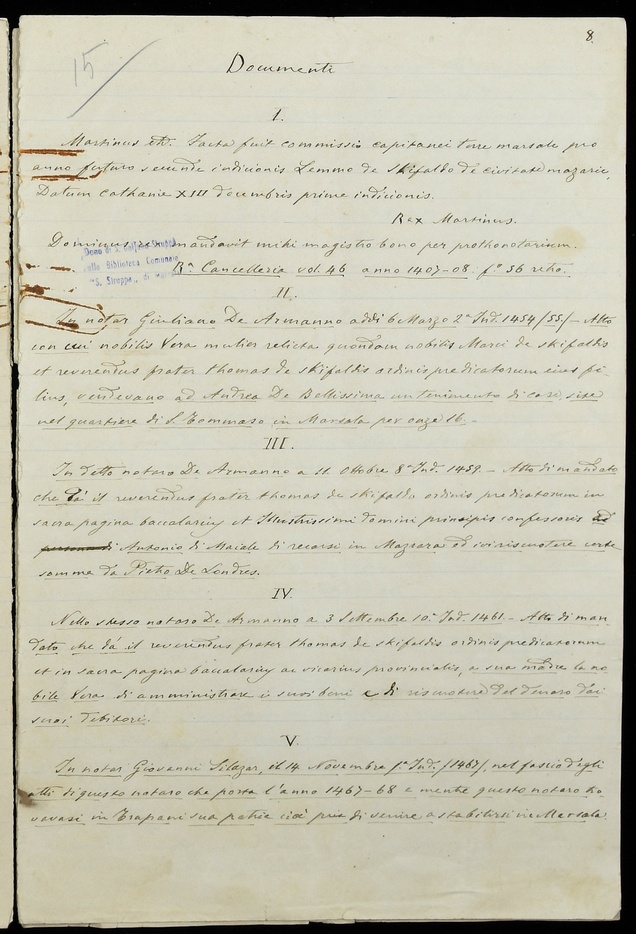 8
15
Documenti
I.
Martinus etc. Facta fuit commissio capitanei terre marsale pro
anno futuro secunde indicionis Lemmo de Skifaldo de civitate mazarie,
Datum Cathanie XIII decembris prime indicionis.
Rex Martinus.
Dominus rex mandavit mihi magistro bono per prothonotarium.
Dono di
alla Biblioteca Comunale
"S. Struppa" di
Ra Cancelleria vol. 46 anno 1407-08. fo 56 retro.
II.
In notar Giuliano De Armanno addì 6 Marzo 2a Ind. 1454/55/ - Atto
con cui nobilis Vera mulier relicta quondam nobilis Marci de skifaldis
et reverendus frater thomas de skifaldis ordinis predicatorum eius fi-
lius, vendevano ad Andrea De Bellissima un tenimento di case, site
nel quartiere di S. Tommaso in Marsala per onze 16.-
III.
In detto notaro De Armanno a 11. Ottobre 8a Ind. 1459. - Atto di mandato
che dà il reverendus frater thomas de skifaldo ordinis predicatorum in
sacra pagina baccalarius et Illustrissimi domini principis confessoris ad
personam di Antonio di Maiale di recarsi in Mazzara ed ivi riscuotere certe
somme da Pietro De Londres.
IV.
Nello stesso notaro De Armanno a 3 Settembre 10a Ind. 1461. - Atto di man
dato, che dà il reverendus frater thomas de skifaldis ordinis predicatorum
et in sacra pagina baccalarius ac vicarius provincialis, a sua madre la no
bile Vera di amministrare i suoi beni e di riscuotere del denaro dai
suoi debitori.
V.
In notar Giovanni Silazar, il 14 Novembre 1a Ind. /1467/, nel fascio degli
atti di questo notaro che porta l'anno 1467-68 e mentre questo notaro tro
vavasi in Trapani sua patria cioè pria di venire a stabilirsi in Marsala.